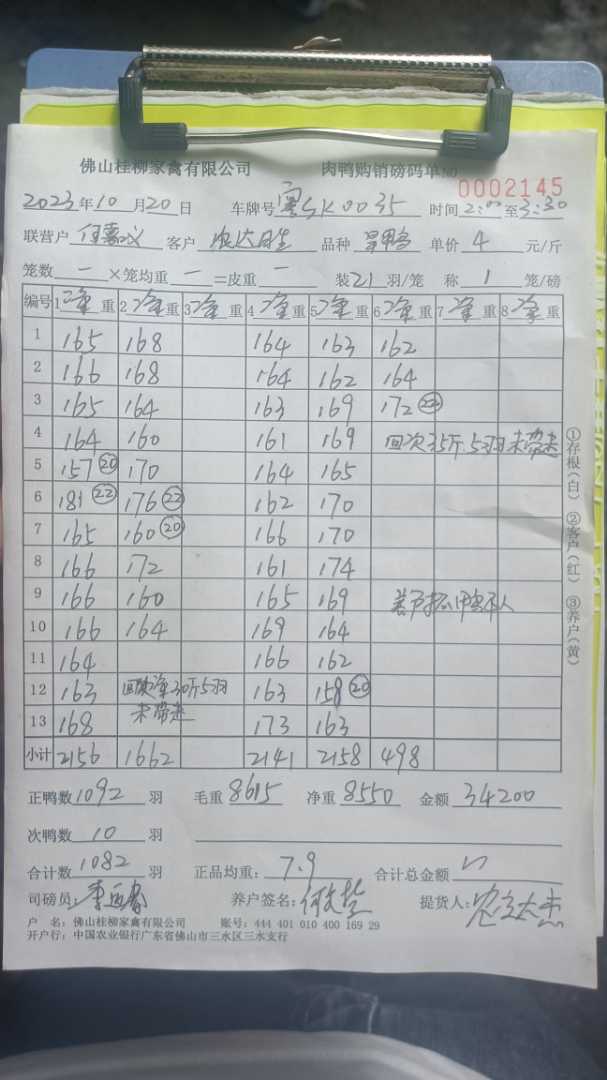 佛山桂柳家禽有限公司 肉鸭购销磅码单
0002145
2023年10月20日 车牌号 0035 时间2:00至3:30
联营户 客户 品种 单价 4 元/斤
笼数 一 ×笼均重 一 =皮重 一 装21羽/笼 称 1 笼/磅
编号 1净重 2净重 3净重 4净重 5净重 6净重 7净重 8净重
1 165 168 164 163 162
2 166 168 164 162 164
3 165 164 163 169 172 (22)
4 164 160 161 169 回次35斤.5羽未带走
5 157 (20) 170 164 165
6 181 (22) 176 (22) 162 170
7 165 160 (20) 166 170
8 166 172 161 174
9 166 160 165 169
10 166 164 169 164
11 164 166 162
12 163 回次净30斤5羽 163 158 (20)
未带走
13 168 173 163
小计 2156 1662 2141 2158 498
正鸭数 1092 羽 毛重 8615 净重 8550 金额 34200
次鸭数 10 羽
合计数 1082 羽 正品均重: 7.9 合计总金额
司磅员: 养户签名: 提货人:
户 名: 佛山桂柳家禽有限公司 账号: 444 401 010 400 169 29
开户行: 中国农业银行广东省佛山市三水区三水支行
①存根(白) ②客户(红) ③养户(黄)